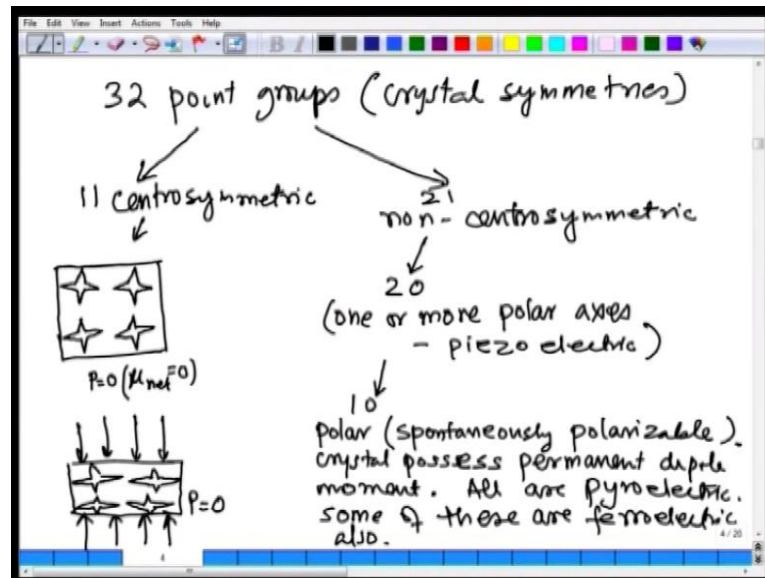 File Edit View Insert Actions Tools Help
32 point groups (crystal symmetries)
11 centrosymmetric
P=0 (μnet=0)
P=0
21
non-centrosymmetric
20
(one or more polar axes
- piezo electric)
10
polar (spontaneously polarizable).
crystal possess permanent dipole
moment. All are pyroelectric.
some of these are ferroelectric
also.
4/20